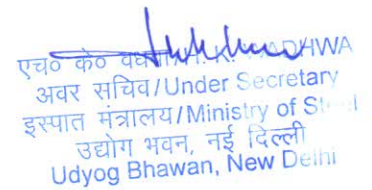 एच० के०
अवर सचिव/Under Secretary
इस्पात मंत्रालय/Ministry of Steel
उद्योग भवन, नई दिल्ली
Udyog Bhawan, New Delhi